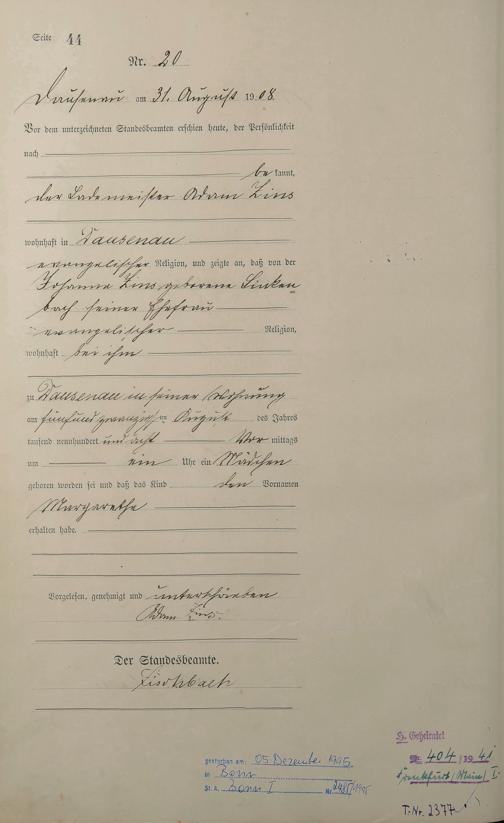 Seite 44
Nr. 20
Dausenau am 31. August 1908.
Vor dem unterzeichneten Standesbeamten erschien heute, der Persönlichkeit
nach
be kannt,
der Lademeister Adam Zins
wohnhaft in Dausenau
evangelischer Religion, und zeigte an, daß von der
Johanna Zins geborene Linken
bach seiner Ehefrau
evangelischer Religion,
wohnhaft bei ihm
zu Dausenau in seiner Wohnung
am fünfundzwanzigsten August des Jahres
tausend neunhundert und acht Vor mittags
um ein Uhr ein Mädchen
geboren worden sei und daß das Kind den Vornamen
Margarethe
erhalten habe.
Vorgelesen, genehmigt und unterschrieben
Adam Zins.
Der Standesbeamte.
Fischbach
gestorben am: 05. Dezember 1995
in Bonn
St. A. Bonn I Nr.
Geheiratet
404 / 19 41
Frankfurt (Main) I
T. Nr. 2377